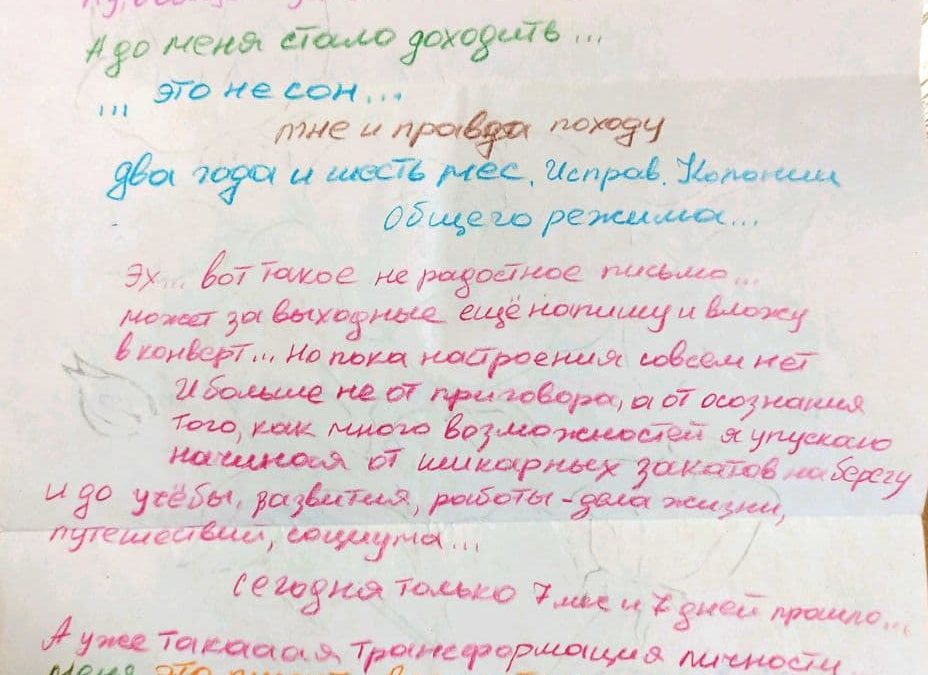 А до меня стало доходить...
... это не сон...
мне и правда походу
два года и шесть мес. Исправ. Колонии
Общего режима...
Эх... вот такое не радостное письмо...
может за выходные ещё напишу и вложу
в конверт... Но пока настроения совсем нет
И больше не от приговора, а от осознания
того, как много возможностей я упускаю
начиная от шикарных закатов на берегу
и до учёбы, развития, работы - дела жизни,
путешествий, социума...
Сегодня только 7 мес и 7 дней прошло...
А уже такаааая трансформация личности
меня это